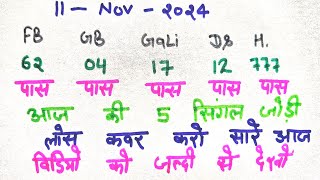 11 - Nov - 2024
FB GB GaLi DS H.
62 04 17 12 777
पास पास पास पास पास
आज की 5 सिंगल जोड़ी
लोस कवर करो सारे आज
विडियो को जल्दी से देखो